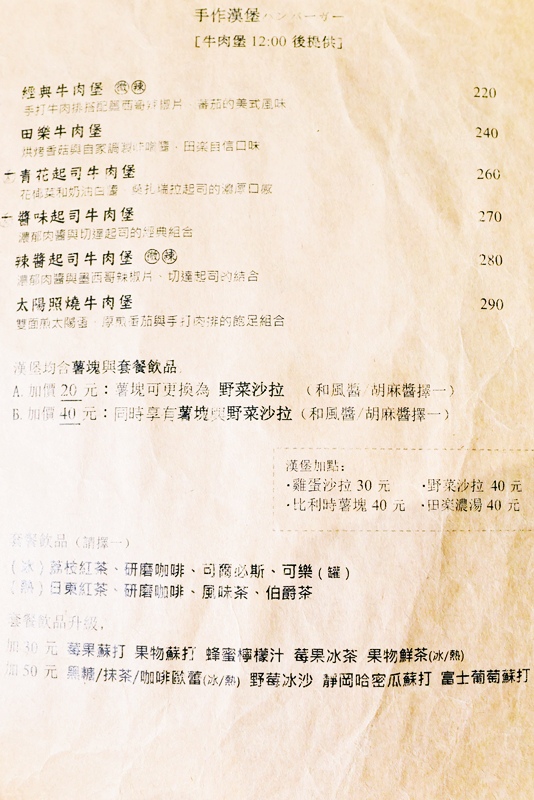 手作漢堡ハンバーガー
[牛肉堡 12:00 後提供]
經典牛肉堡 微辣 220
手打牛肉排搭配墨西哥辣椒片、蕃茄的美式風味
田樂牛肉堡 240
烘烤香菇與自家調製味噌醬，田樂自信口味
青花起司牛肉堡 260
花椰菜和奶油白醬，莫扎瑞拉起司的濃厚口感
醬味起司牛肉堡 270
濃郁肉醬與切達起司的經典組合
辣醬起司牛肉堡 微辣 280
濃郁肉醬與墨西哥辣椒片、切達起司的結合
太陽照燒牛肉堡 290
雙面煎太陽蛋、厚煎番茄與手打肉排的飽足組合
漢堡均含薯塊與套餐飲品。
A. 加價 20 元：薯塊可更換為 野菜沙拉 （和風醬/胡麻醬擇一）
B. 加價 40 元：同時享有薯塊與野菜沙拉（和風醬/胡麻醬擇一）
漢堡加點：
·雞蛋沙拉 30 元 ·野菜沙拉 40 元
·比利時薯塊 40 元 ·田樂濃湯 40 元
套餐飲品（請擇一）
（冰）荔枝紅茶、研磨咖啡、可爾必斯、可樂（罐）
（熱）日東紅茶、研磨咖啡、風味茶、伯爵茶
套餐飲品升級，
加 30 元 莓果蘇打 果物蘇打 蜂蜜檸檬汁 莓果冰茶 果物鮮茶(冰/熱)
加 50 元 黑糖/抹茶/咖啡歐蕾(冰/熱) 野莓冰沙 靜岡哈密瓜蘇打 富士葡萄蘇打